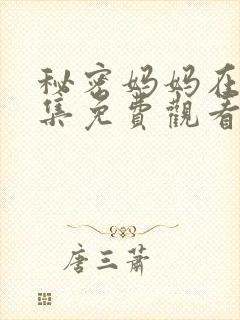 秘密妈妈在
集免費觀看
唐三蕭